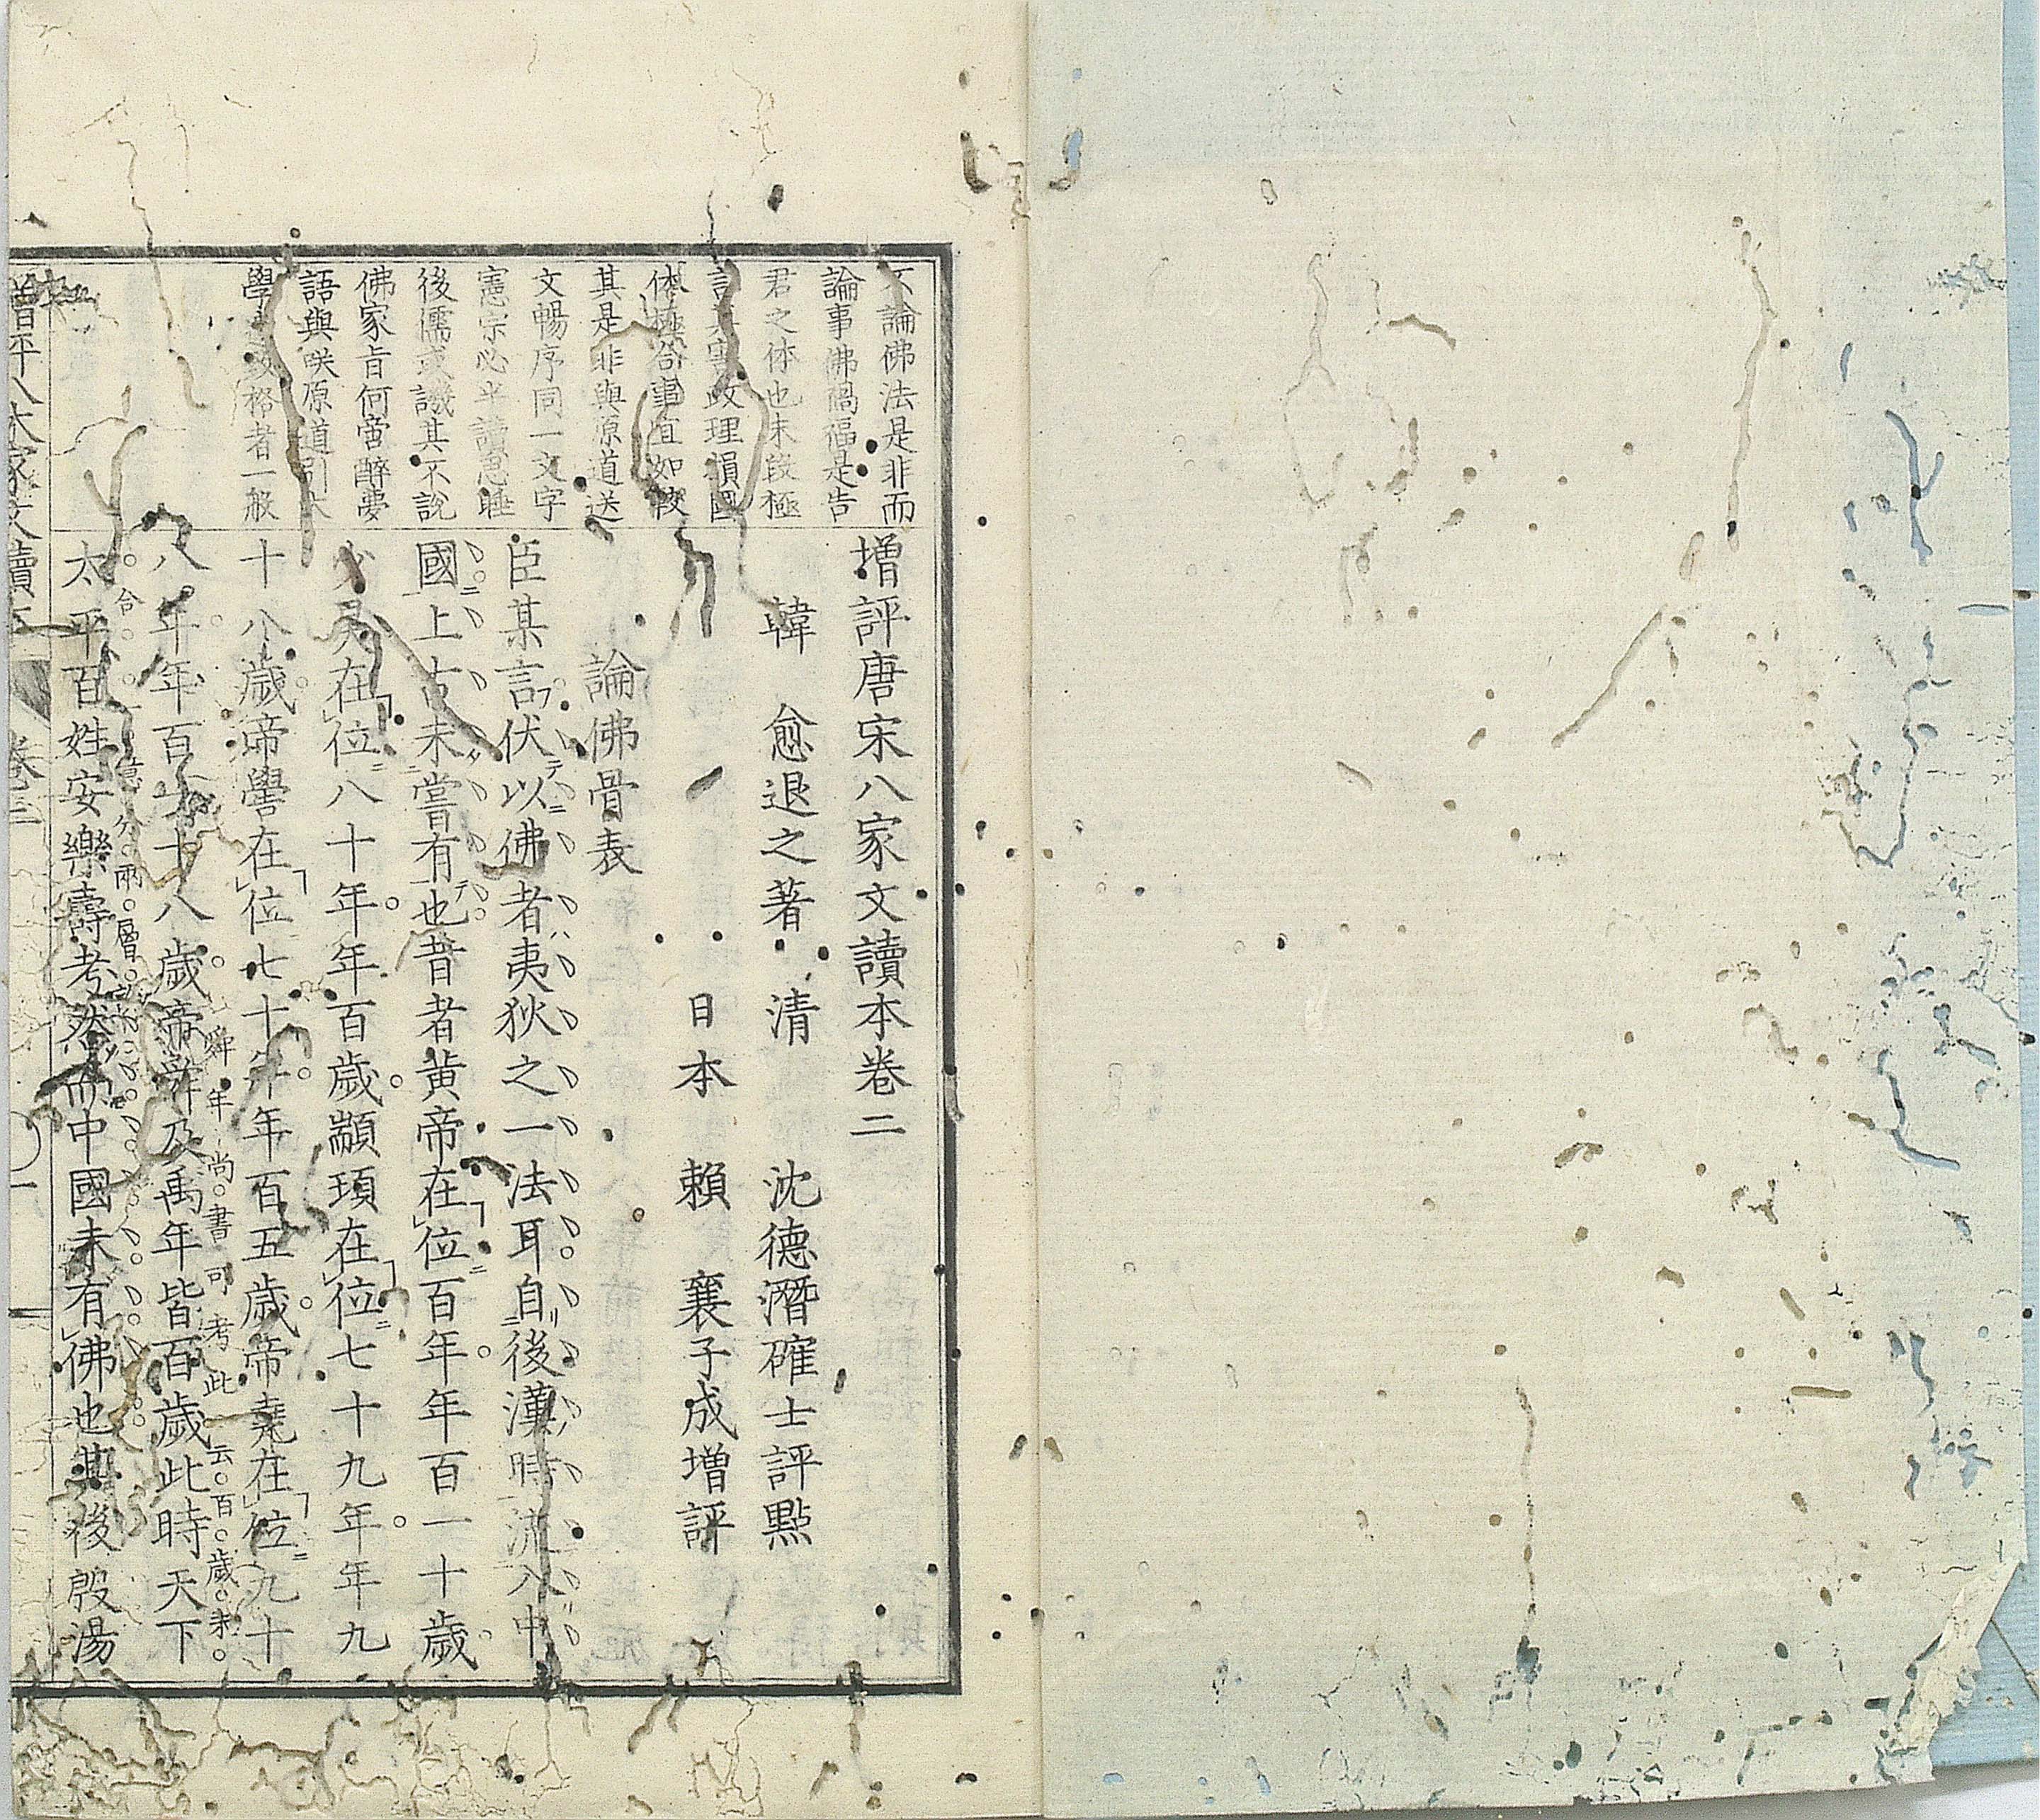 不論佛法是非而
論事佛禍福是告
君之体也末段極
言其害政理損國
体極合事宜如彼
其是非與原道送
文暢序同一文字
憲宗必半讀思睡
後儒或譏其不說
佛家旨何啻醉夢
語與咲原道引大
學 致格者一般
增評唐宋八家文讀本卷二
韓愈退之著 清 沈德潛確士評點
日本 賴襄子成增評
論佛骨表
臣某言伏以佛者夷狄之一法耳自後漢時流入中
國上古未嘗有也昔者黃帝在位百年年百一十歲
少昊在位八十年年百歲顓頊在位七十九年年九
十八歲帝嚳在位七十年年百五歲帝堯在位九十
舜年尚書可考此云百歲未
八年年百一十八歲帝舜及禹年皆百歲此時天下
合 一意分兩層
太平百姓安樂壽考然而中國未有佛也其後殷湯
增評八大家文讀本 卷二 一